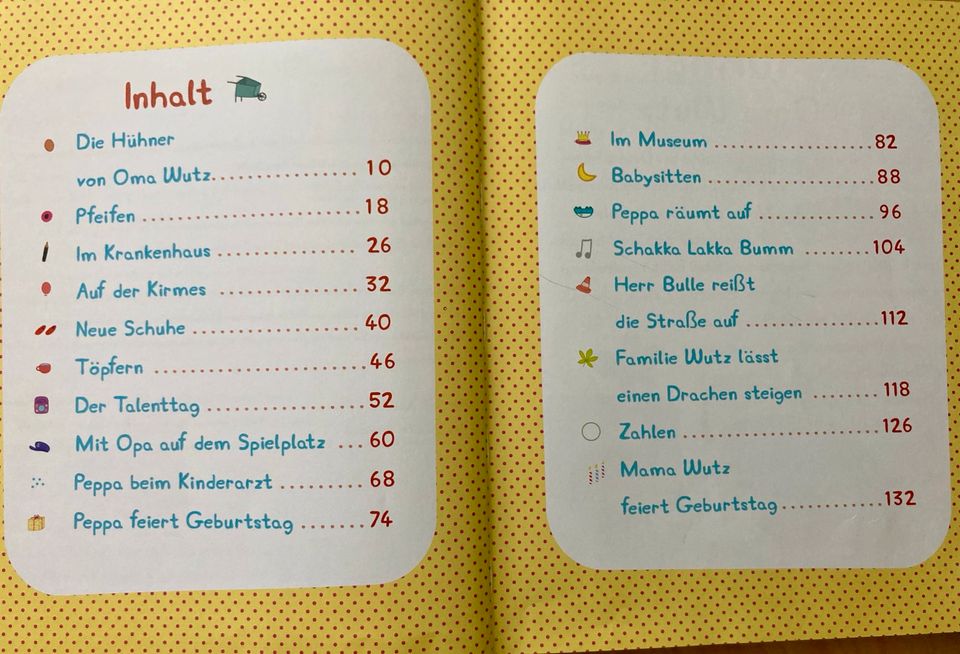 Inhalt
Die Hühner
von Oma Wutz................ 10
Pfeifen ........................ 18
Im Krankenhaus ............... 26
Auf der Kirmes ............... 32
Neue Schuhe ................... 40
Töpfern ........................ 46
Der Talenttag ................. 52
Mit Opa auf dem Spielplatz ... 60
Peppa beim Kinderarzt ......... 68
Peppa feiert Geburtstag ....... 74
Im Museum ................... 82
Babysitten .................... 88
Peppa räumt auf .............. 96
Schakka Lakka Bumm ........ 104
Herr Bulle reißt
die Straße auf ................ 112
Familie Wutz lässt
einen Drachen steigen ........ 118
Zahlen ........................ 126
Mama Wutz
feiert Geburtstag ............. 132